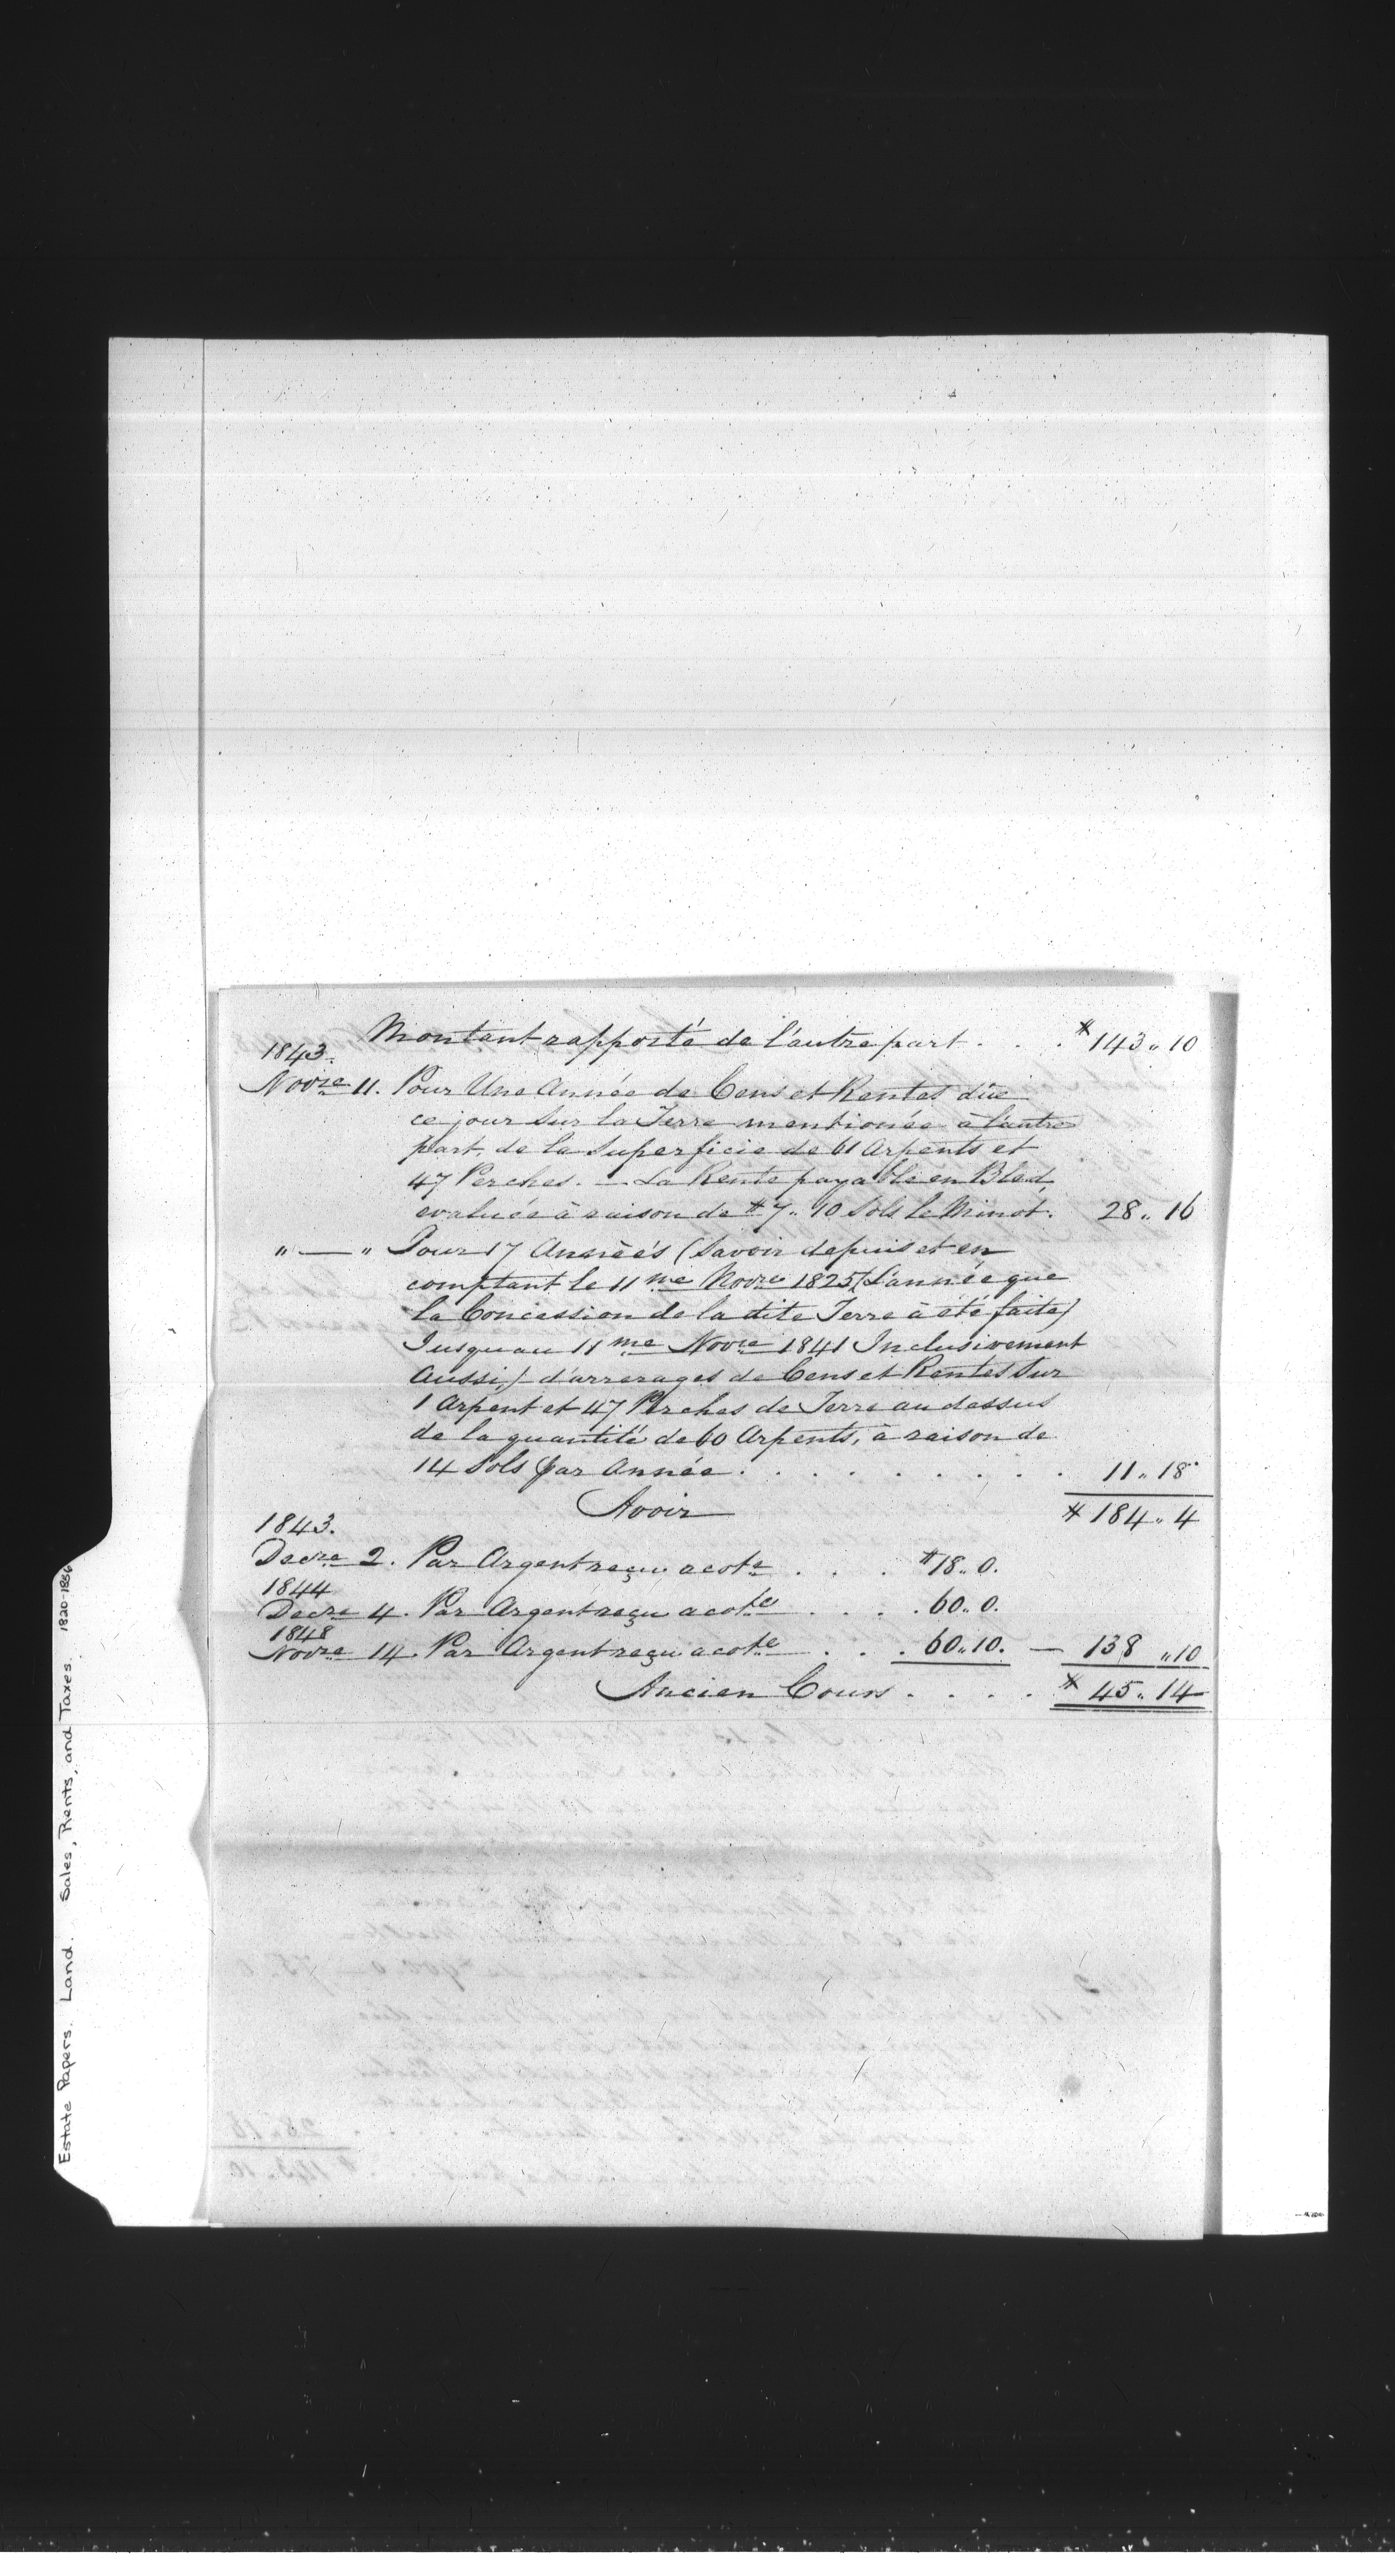 Montant rapporté de l'autre part . . . # 143 " 10
1843.
Novre 11. Pour Une Année de Cens et Rentes dûe
ce jour sur la Terre mentionée à l'autre
part, de la Superficie de 61 Arpents et
47 Perches. — La Rente payable en Bled,
evaluée à raison de # 7 " 10 Sols le Minot. 28 " 16
" — " Pour 17 Années (Savoir depuis et en
comptant le 11me Novre 1825, (L'année que
la Concession de la dite Terre à été faite)
Jusquau 11me Novre 1841 Inclusivement
Aussi,) d'arrerages de Cens et Rentes Sur
1 Arpent et 47 Perches de Terre au dessus
de la quantité de 60 Arpents, à raison de
14 Sols par Année . . . . . . . 11 " 18
Avoir # 184 " 4
1843.
Decre 2. Par Argent reçu acote . . . # 18 " 0.
1844
Decre 4. Par Argent reçu acote . . . . 60 " 0.
1848
Novre 14. Par Argent reçu acote . . . 60 " 10. — 138 " 10
Ancien Cours . . . . # 45 " 14
Estate Papers. Land. Sales, Rents, and Taxes. 1820-1856